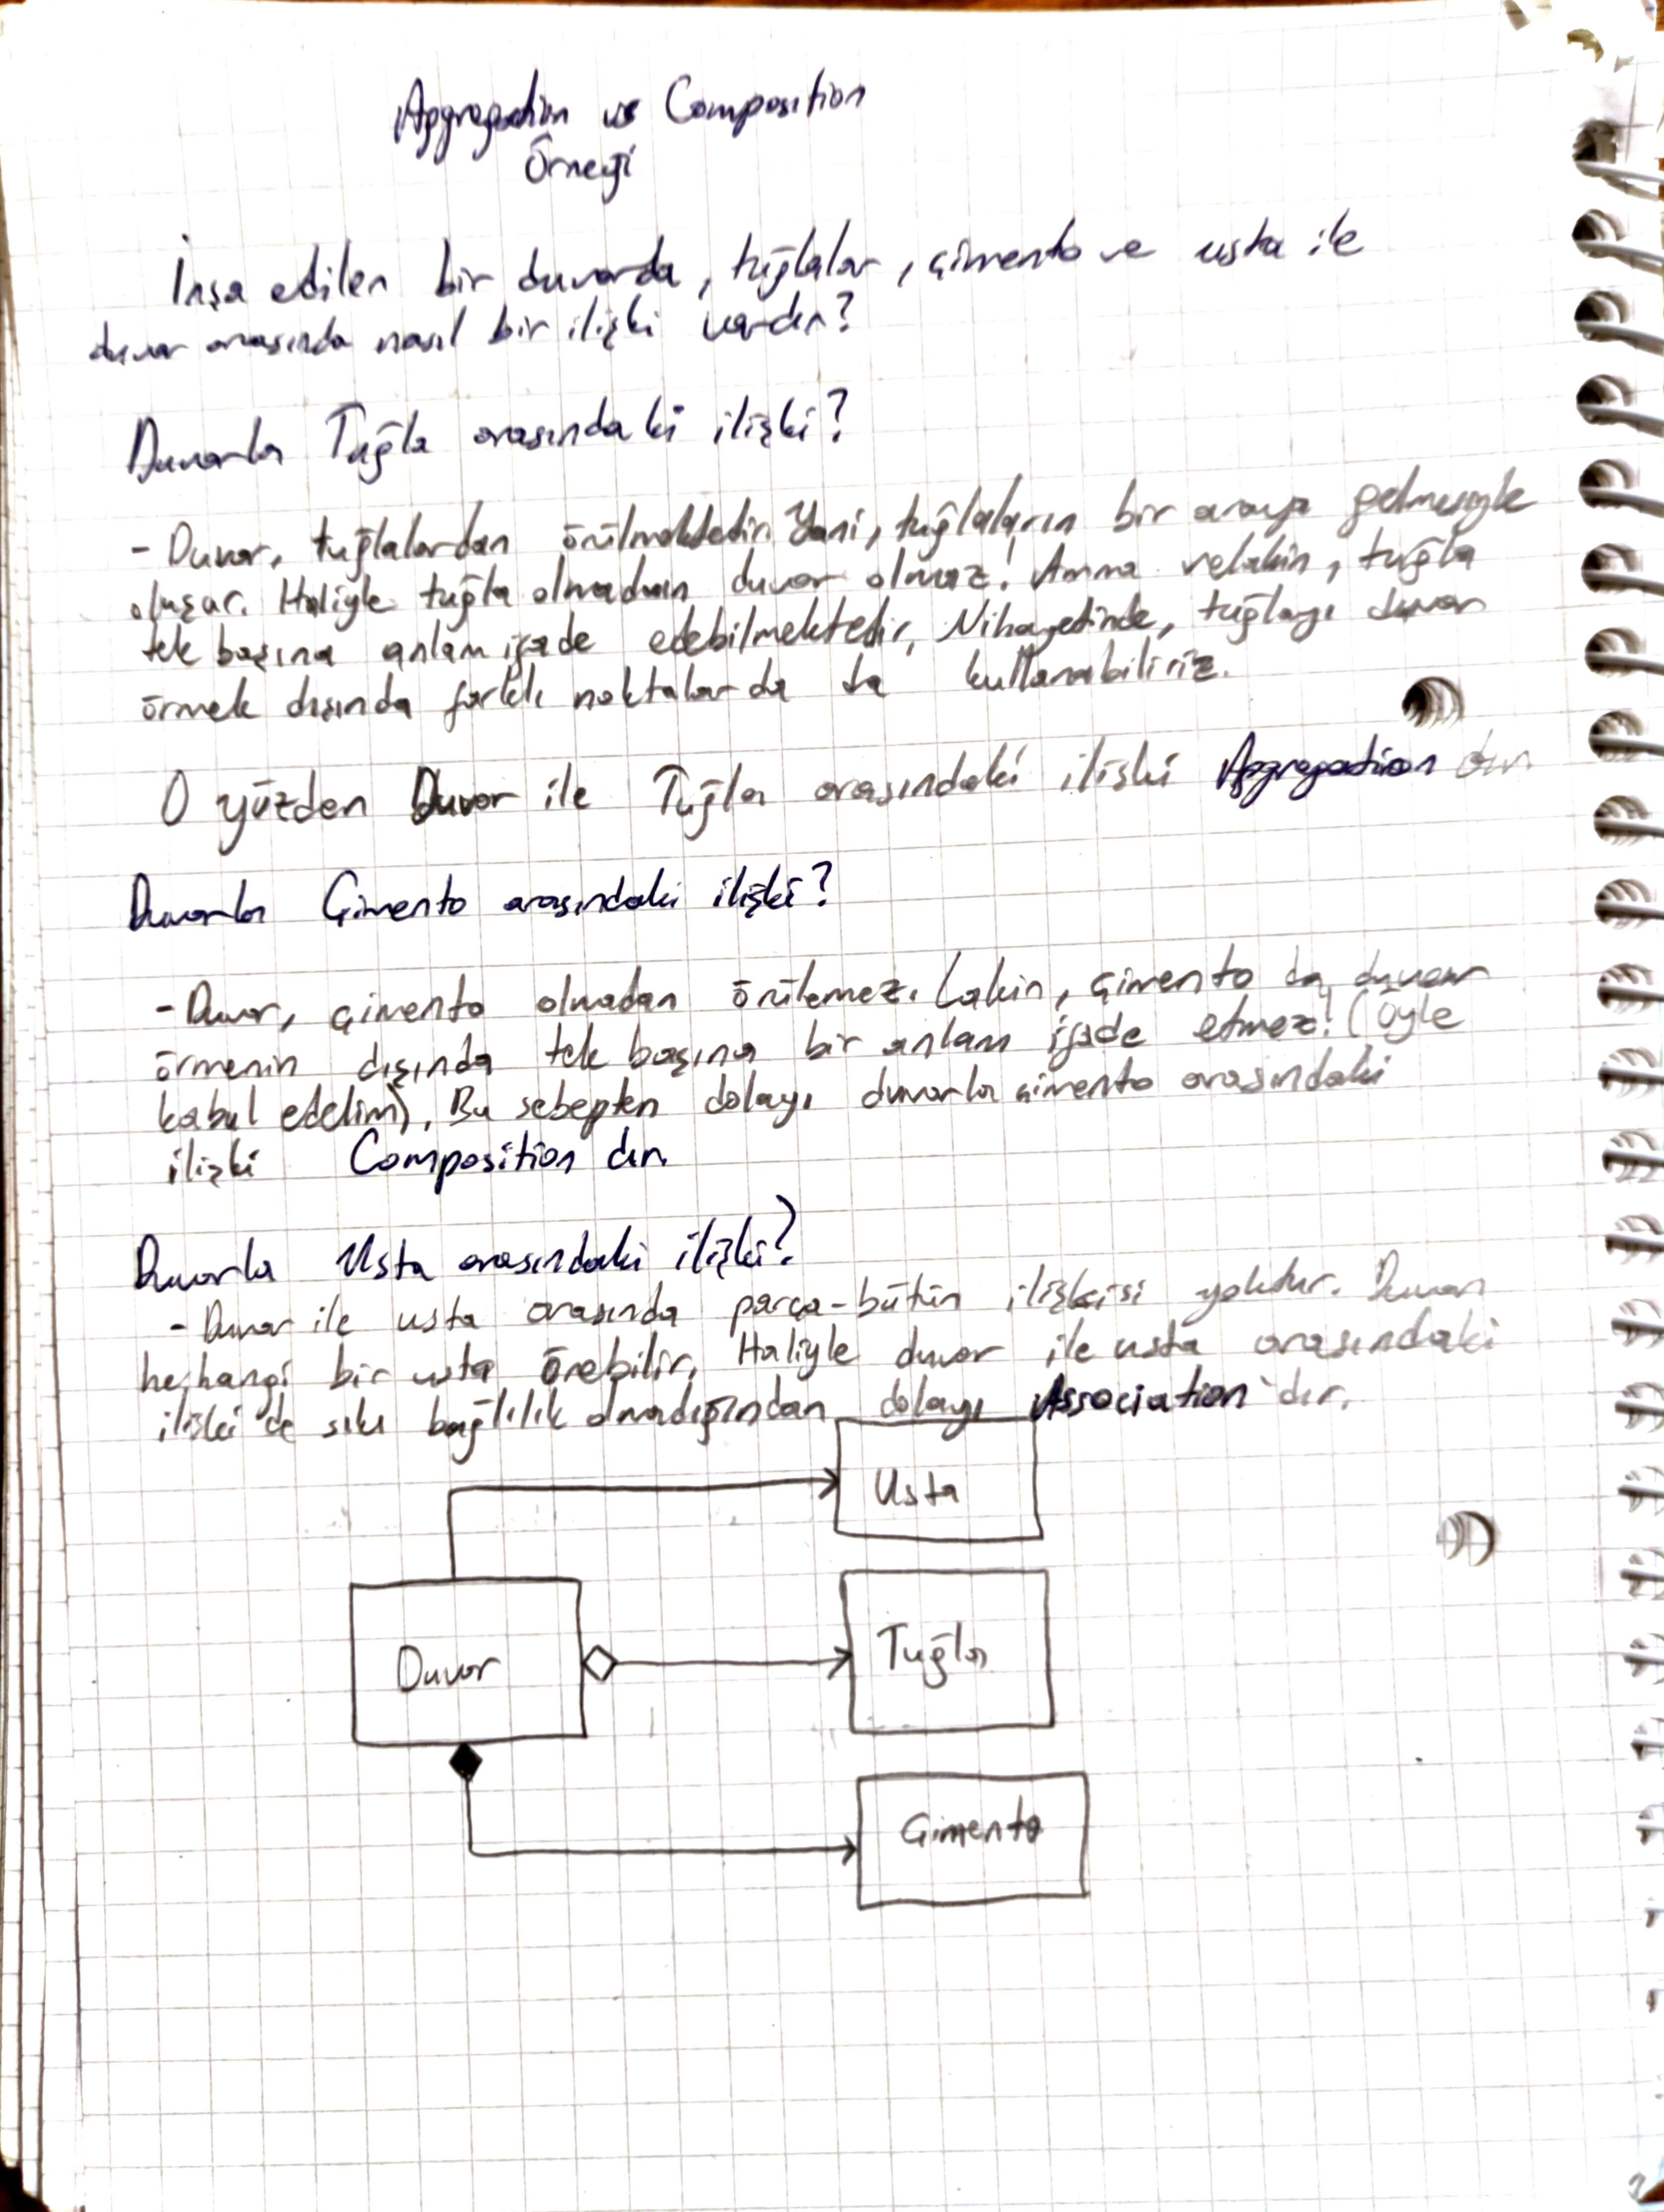 Aggregation ve Composition
Örneği
İnşa edilen bir duvarda, tuğlalar, çimento ve usta ile
duvar arasında nasıl bir ilişki vardır?
Duvarla Tuğla arasındaki ilişki?
- Duvar, tuğlalardan örülmektedir. Yani, tuğlaların bir araya gelmesiyle
oluşur. Haliyle tuğla olmadan duvar olmaz! Amma velakin, tuğla
tek başına anlam ifade edebilmektedir. Nihayetinde, tuğlayı duvar
örmek dışında farklı noktalarda da kullanabiliriz.
O yüzden Duvar ile Tuğla arasındaki ilişki Aggregation dır.
Duvarla Çimento arasındaki ilişki?
- Duvar, çimento olmadan örülemez. Lakin, çimento da duvar
örmenin dışında tek başına bir anlam ifade etmez! (Öyle
kabul edelim). Bu sebepten dolayı duvarla çimento arasındaki
ilişki Composition dır.
Duvarla Usta arasındaki ilişki?
- Duvar ile usta arasında parça-bütün ilişkisi yoktur. Duvarı
herhangi bir usta örebilir. Haliyle duvar ile usta arasındaki
ilişki de sıkı bağlılık olmadığından dolayı Association'dır.
Usta
Duvar
Tuğla
Çimento